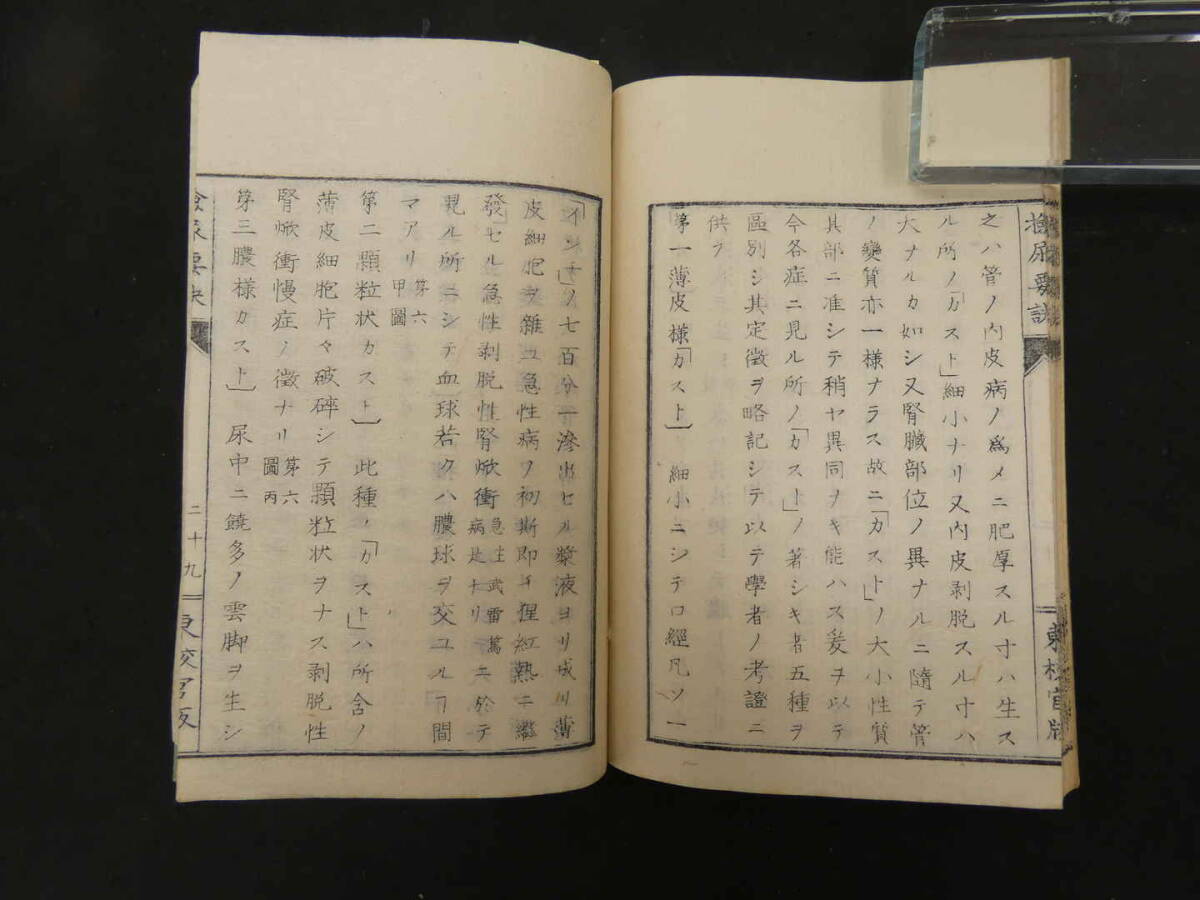 檢尿要訣
東校官版
之ハ管ノ内皮病ノ爲メニ肥厚スル寸ハ生ス
ル所ノ「カスト」細小ナリ又内皮剥脱スル寸ハ
大ナルカ如シ又腎臓部位ノ異ナルニ隨テ管
ノ變質亦一様ナラス故ニ「カスト」ノ大小性質
其部ニ准シテ稍ヤ異同ヲキ能ハス爰ヲ以テ
今各症ニ見ル所ノ「カスト」ノ著シキ者五種ヲ
區別シ其定徴ヲ略記シテ以テ學者ノ考證ニ
供フ
第一薄皮様「カスト」 細小ニシテ口經凡ソ一
「インチ」ノ七百分一滲出セル漿液ヨリ成リ薄
皮細胞ヲ雜ユ急性病ノ初斯即チ猩紅熱ニ繼
發セル急性剥脱性腎焮衝急性武雷萬病是ナリニ於テ
見ル所ニシテ血球若クハ膿球ヲ交ユルヿ間
マアリ第六甲圖
第二顆粒状カスト」 此種ノ「カスト」ハ所含ノ
薄皮細胞片々破碎シテ顆粒状ヲナス剥脱性
腎焮衝慢症ノ徴ナリ第六圖丙
第三膿様カスト」 尿中ニ饒多ノ雲脚ヲ生シ
檢尿要訣
二十九
東校官版